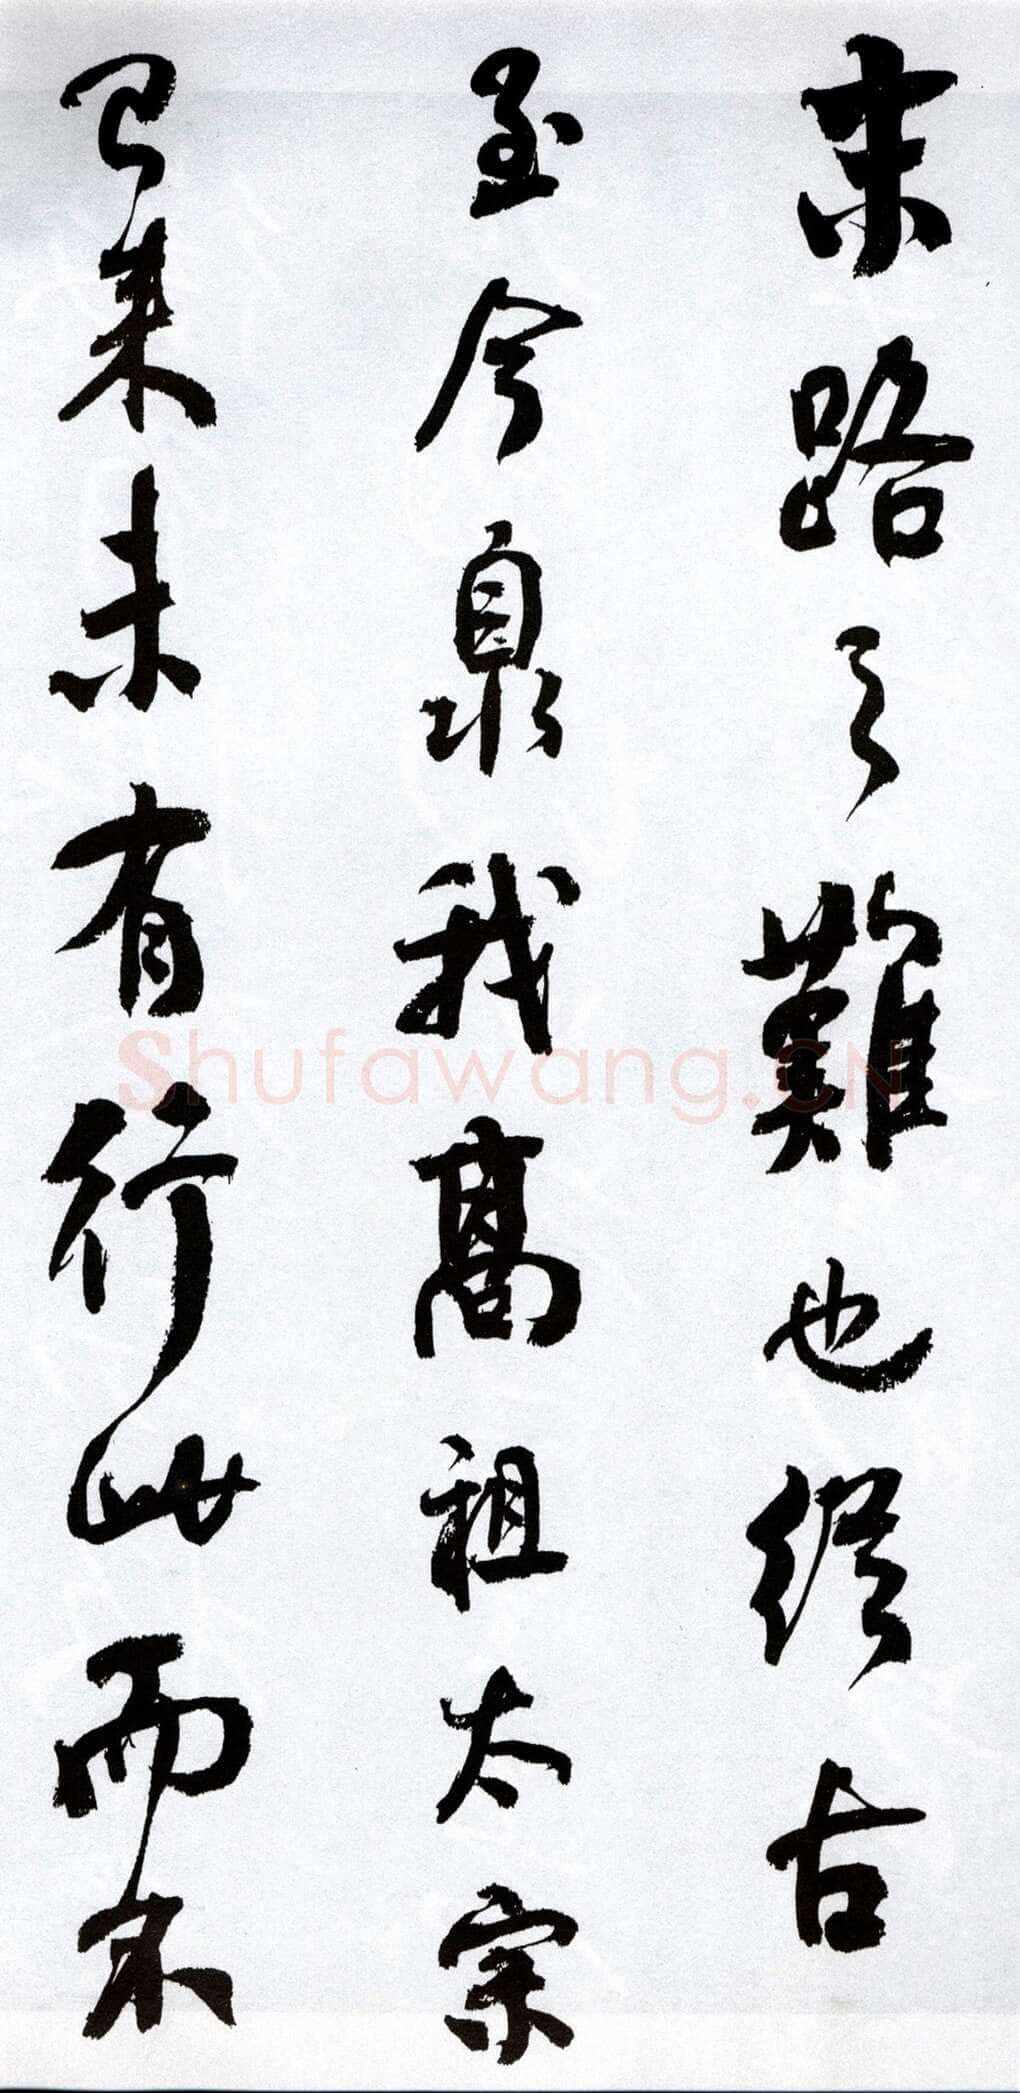 末路之難也縱古
至今泉我高祖太宗
已来未有行此而不
Shufawang.CN